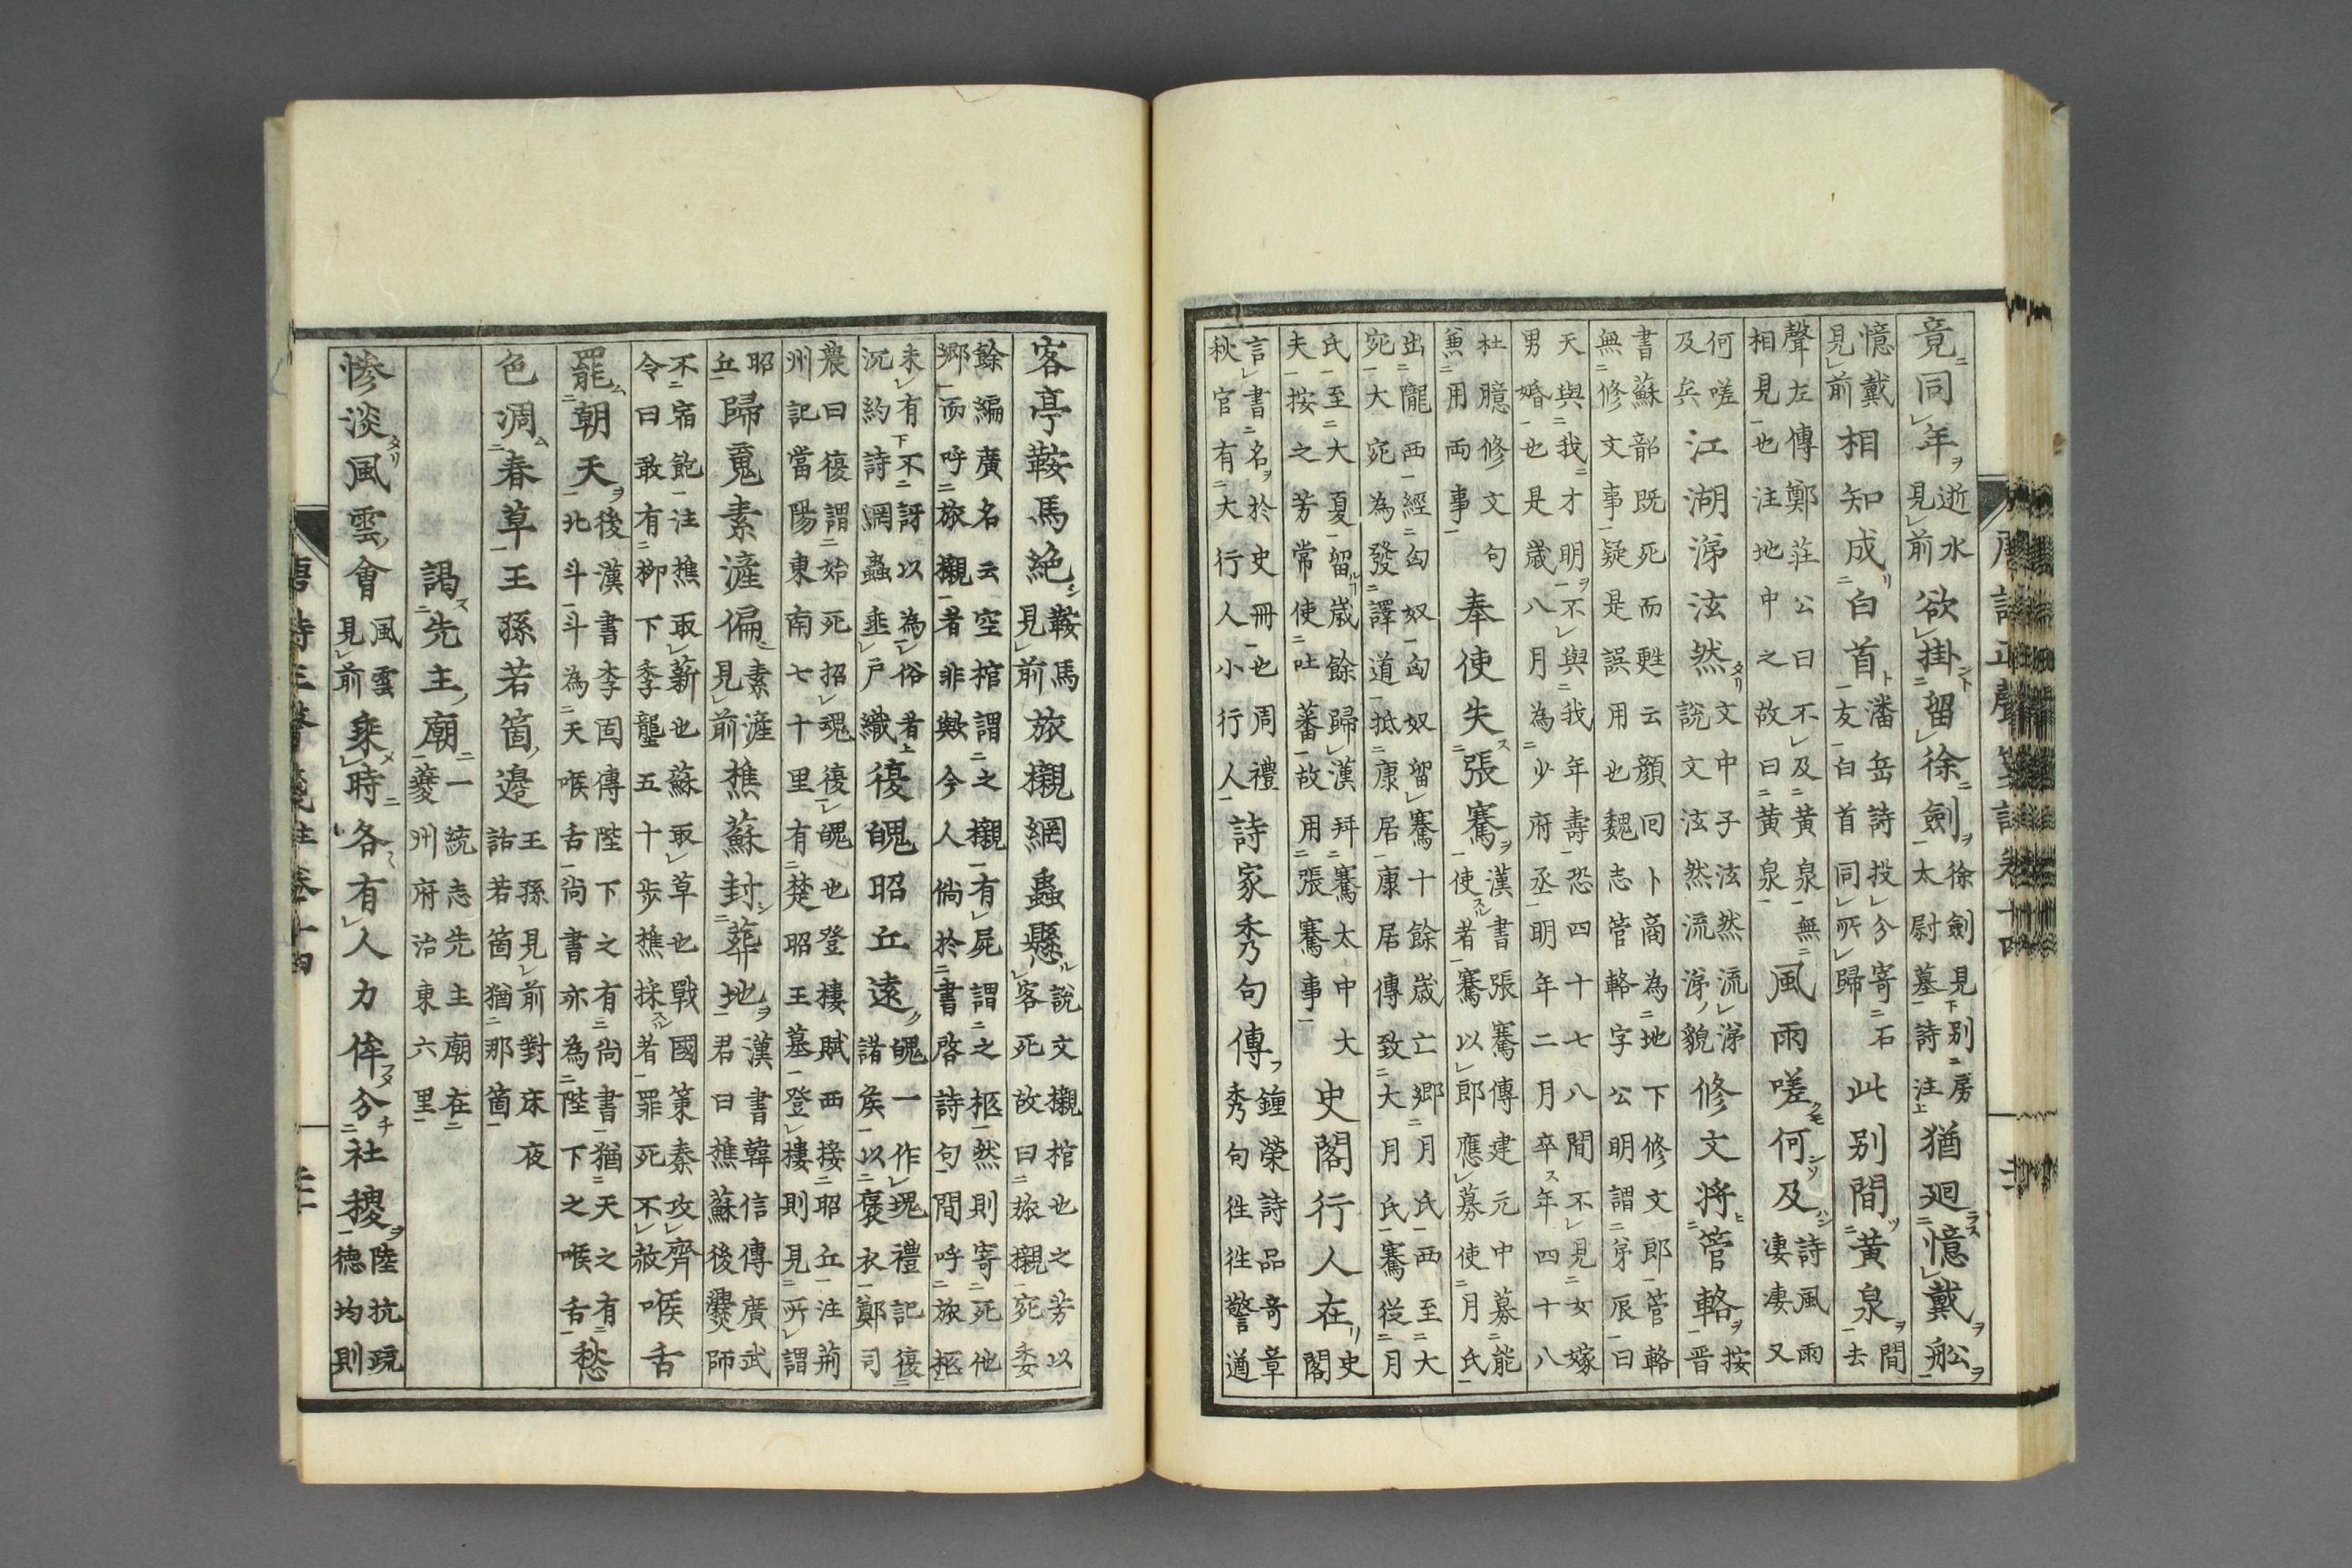 唐詩正聲箋註卷十四
竟同年逝水見前欲掛留徐劍徐劍見別房太尉墓詩注猶廻憶戴舩
憶戴見前相知成白首潘岳詩投分寄石友白首同所歸此別間黄泉間去
聲左傳鄭莊公曰不及黄泉無相見也注地中之故曰黄泉風雨嗟何及詩風雨凄凄又
何嗟及矣江湖涕泫然文中子泫然流涕說文泫然流涕貌修文將管輅按晋
書蘇韶既死而甦云顔回卜商為地下修文郎管輅無修文事疑是誤用也魏志管輅字公明謂弟辰曰
天與我才明不與我年壽恐四十七八間不見女嫁男婚也是歳八月為少府丞明年二月卒年四十八
杜臆修文句兼用両事奉使失張騫漢書張騫傳建元中募能使者騫以郎應募使月氏
出隴西經匈奴匈奴留騫十餘歳亡郷月氏西至大宛大宛為發譯道抵康居康居傳致大月氏騫從月
氏至大夏留歳餘歸漢拜騫太中大夫按之芳常使吐蕃故用張騫事史閣行人在史閣
言書名於史冊也周禮秋官有大行人小行人詩家秀句傳鍾榮詩品竒章秀句徃徃警遒
客亭鞍馬絶鞍馬見前旅櫬網蟲懸說文櫬棺也之芳以客死故曰旅櫬宛委
餘編廣名云空棺謂之櫬有屍謂之柩然則寄死他郷而呼旅櫬者非歟今人倘於書啓詩句間呼旅柩
未有不訝以為俗者沉約詩網蟲垂戸織復魄昭丘遠魄一作瑰禮記復諸侯以褒衣鄭司
農曰復謂始死招魂復魄也登樓賦西接昭丘注荊州記當陽東南七十里有楚昭王墓登樓則見所謂
昭丘歸䰟素滻偏素滻見前樵蘇封葬地漢書韓信傳廣武君曰樵蘇後爨師
不宿飽注樵取薪也蘇取草也戰國策秦攻齊令曰敢有柳下季壟五十歩樵採者罪死不赦喉舌
罷朝天後漢書李固傳陛下之有尚書猶天之有北斗斗為天喉舌尚書亦為陛下之喉舌愁
色凋春草王孫若箇邊王孫見前對床夜話若箇猶那箇
謁先主廟一統志先主廟在夔州府治東六里
惨淡風雲會風雲見前乗時各有人力侔分社稷陸抗䟽德均則